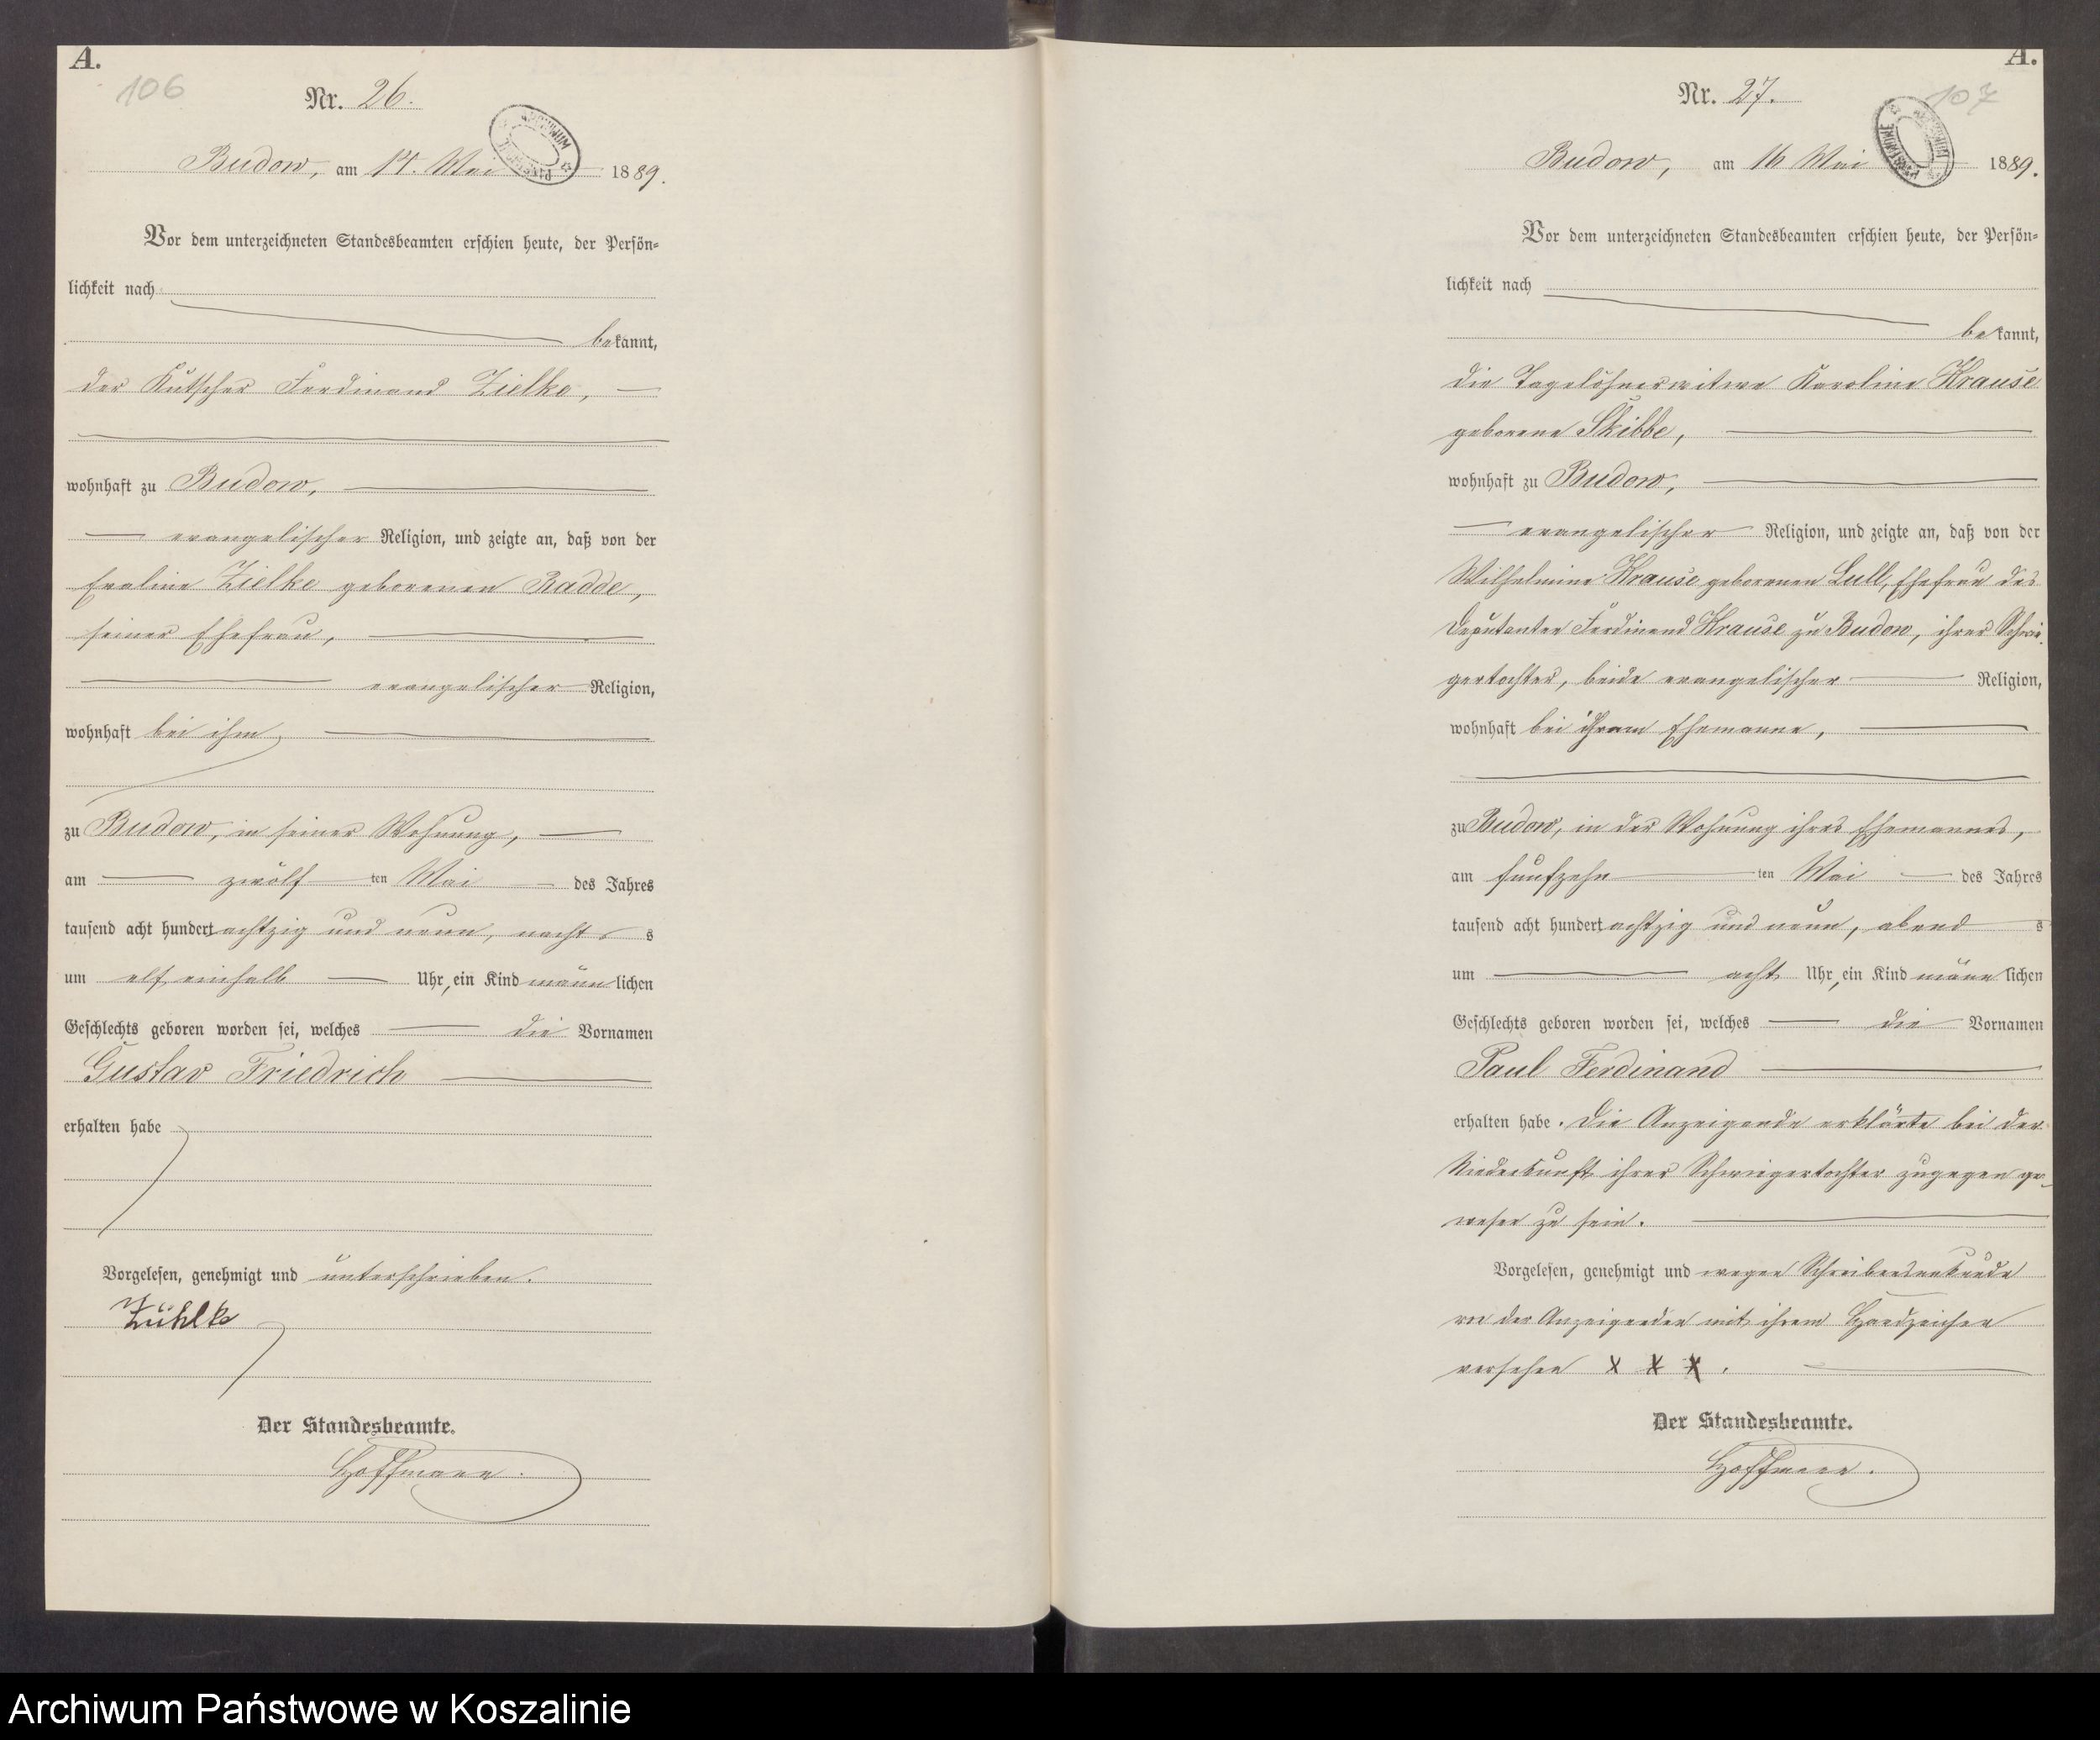 A.
106
Nr. 26.
Budow, am 14. Mai 1889.
Vor dem unterzeichneten Standesbeamten erschien heute, der Persön-
lichkeit nach
bekannt,
der Kutscher Ferdinand Zielke,
wohnhaft zu Budow,
evangelischer Religion, und zeigte an, daß von der
Eveline Zielke geborenen Radde,
seiner Ehefrau,
evangelischer Religion,
wohnhaft bei ihm,
zu Budow, in seiner Wohnung,
am zwölf ten Mai des Jahres
tausend acht hundert achtzig und neun, nacht s
um elf einhalb Uhr, ein Kind männlichen
Geschlechts geboren worden sei, welches die Vornamen
Gustav Friedrich
erhalten habe
Vorgelesen, genehmigt und unterschrieben.
Zühlk
Der Standesbeamte.
Hoffmann.
A.
107
Nr. 27.
Budow, am 16 Mai 1889.
Vor dem unterzeichneten Standesbeamten erschien heute, der Persön-
lichkeit nach
bekannt,
die Tagelöhnerwitwe Karoline Krause
geborene Skibbe,
wohnhaft zu Budow,
evangelischer Religion, und zeigte an, daß von der
Wilhelmine Krause geborenen Lull, Ehefrau des
Deputanten Ferdinand Krause zu Budow, ihrer Schwie-
gertochter, beide evangelischer Religion,
wohnhaft bei ihrem Ehemanne,
zu Budow, in der Wohnung ihres Ehemannes,
am fünfzehn ten Mai des Jahres
tausend acht hundert achtzig und neun, abend s
um acht Uhr, ein Kind männlichen
Geschlechts geboren worden sei, welches die Vornamen
Paul Ferdinand
erhalten habe. Die Anzeigende erklärte bei der
Niederkunft ihrer Schwiegertochter zugegen ge-
wesen zu sein.
Vorgelesen, genehmigt und wegen Schreibensunkunde
von der Anzeigenden mit ihrem Handzeichen
versehen x x x.
Der Standesbeamte.
Hoffmann.
Archiwum Państwowe w Koszalinie